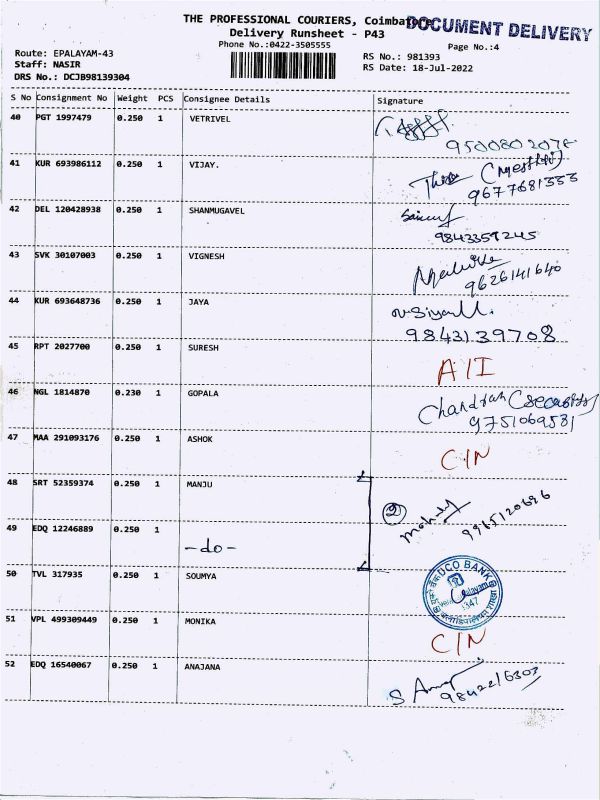 THE PROFESSIONAL COURIERS, Coimbatore
DOCUMENT DELIVERY
Delivery Runsheet - P43
Phone No.:0422-3505555
Page No.:4
Route: EPALAYAM-43
RS No.: 981393
Staff: NASIR
RS Date: 18-Jul-2022
DRS No.: DCJB98139304
S No Consignment No Weight PCS Consignee Details Signature
40 PGT 1997479 0.250 1 VETRIVEL
9500802078
41 KUR 693986112 0.250 1 VIJAY.
9677681333
42 DEL 120428938 0.250 1 SHANMUGAVEL
9843359245
43 SVK 30107003 0.250 1 VIGNESH
9626141640
44 KUR 693648736 0.250 1 JAYA
9843139708
45 RPT 2027700 0.250 1 SURESH
A/I
46 NGL 1814870 0.230 1 GOPALA
Chandran (security)
9751069531
47 MAA 291093176 0.250 1 ASHOK
C/N
48 SRT 52359374 0.250 1 MANJU
2
9965120696
49 EDQ 12246889 0.250 1
-do-
50 TVL 317935 0.250 1 SOUMYA
UCO BANK
51 VPL 499309449 0.250 1 MONIKA
C/N
52 EDQ 16540067 0.250 1 ANAJANA
9842216303